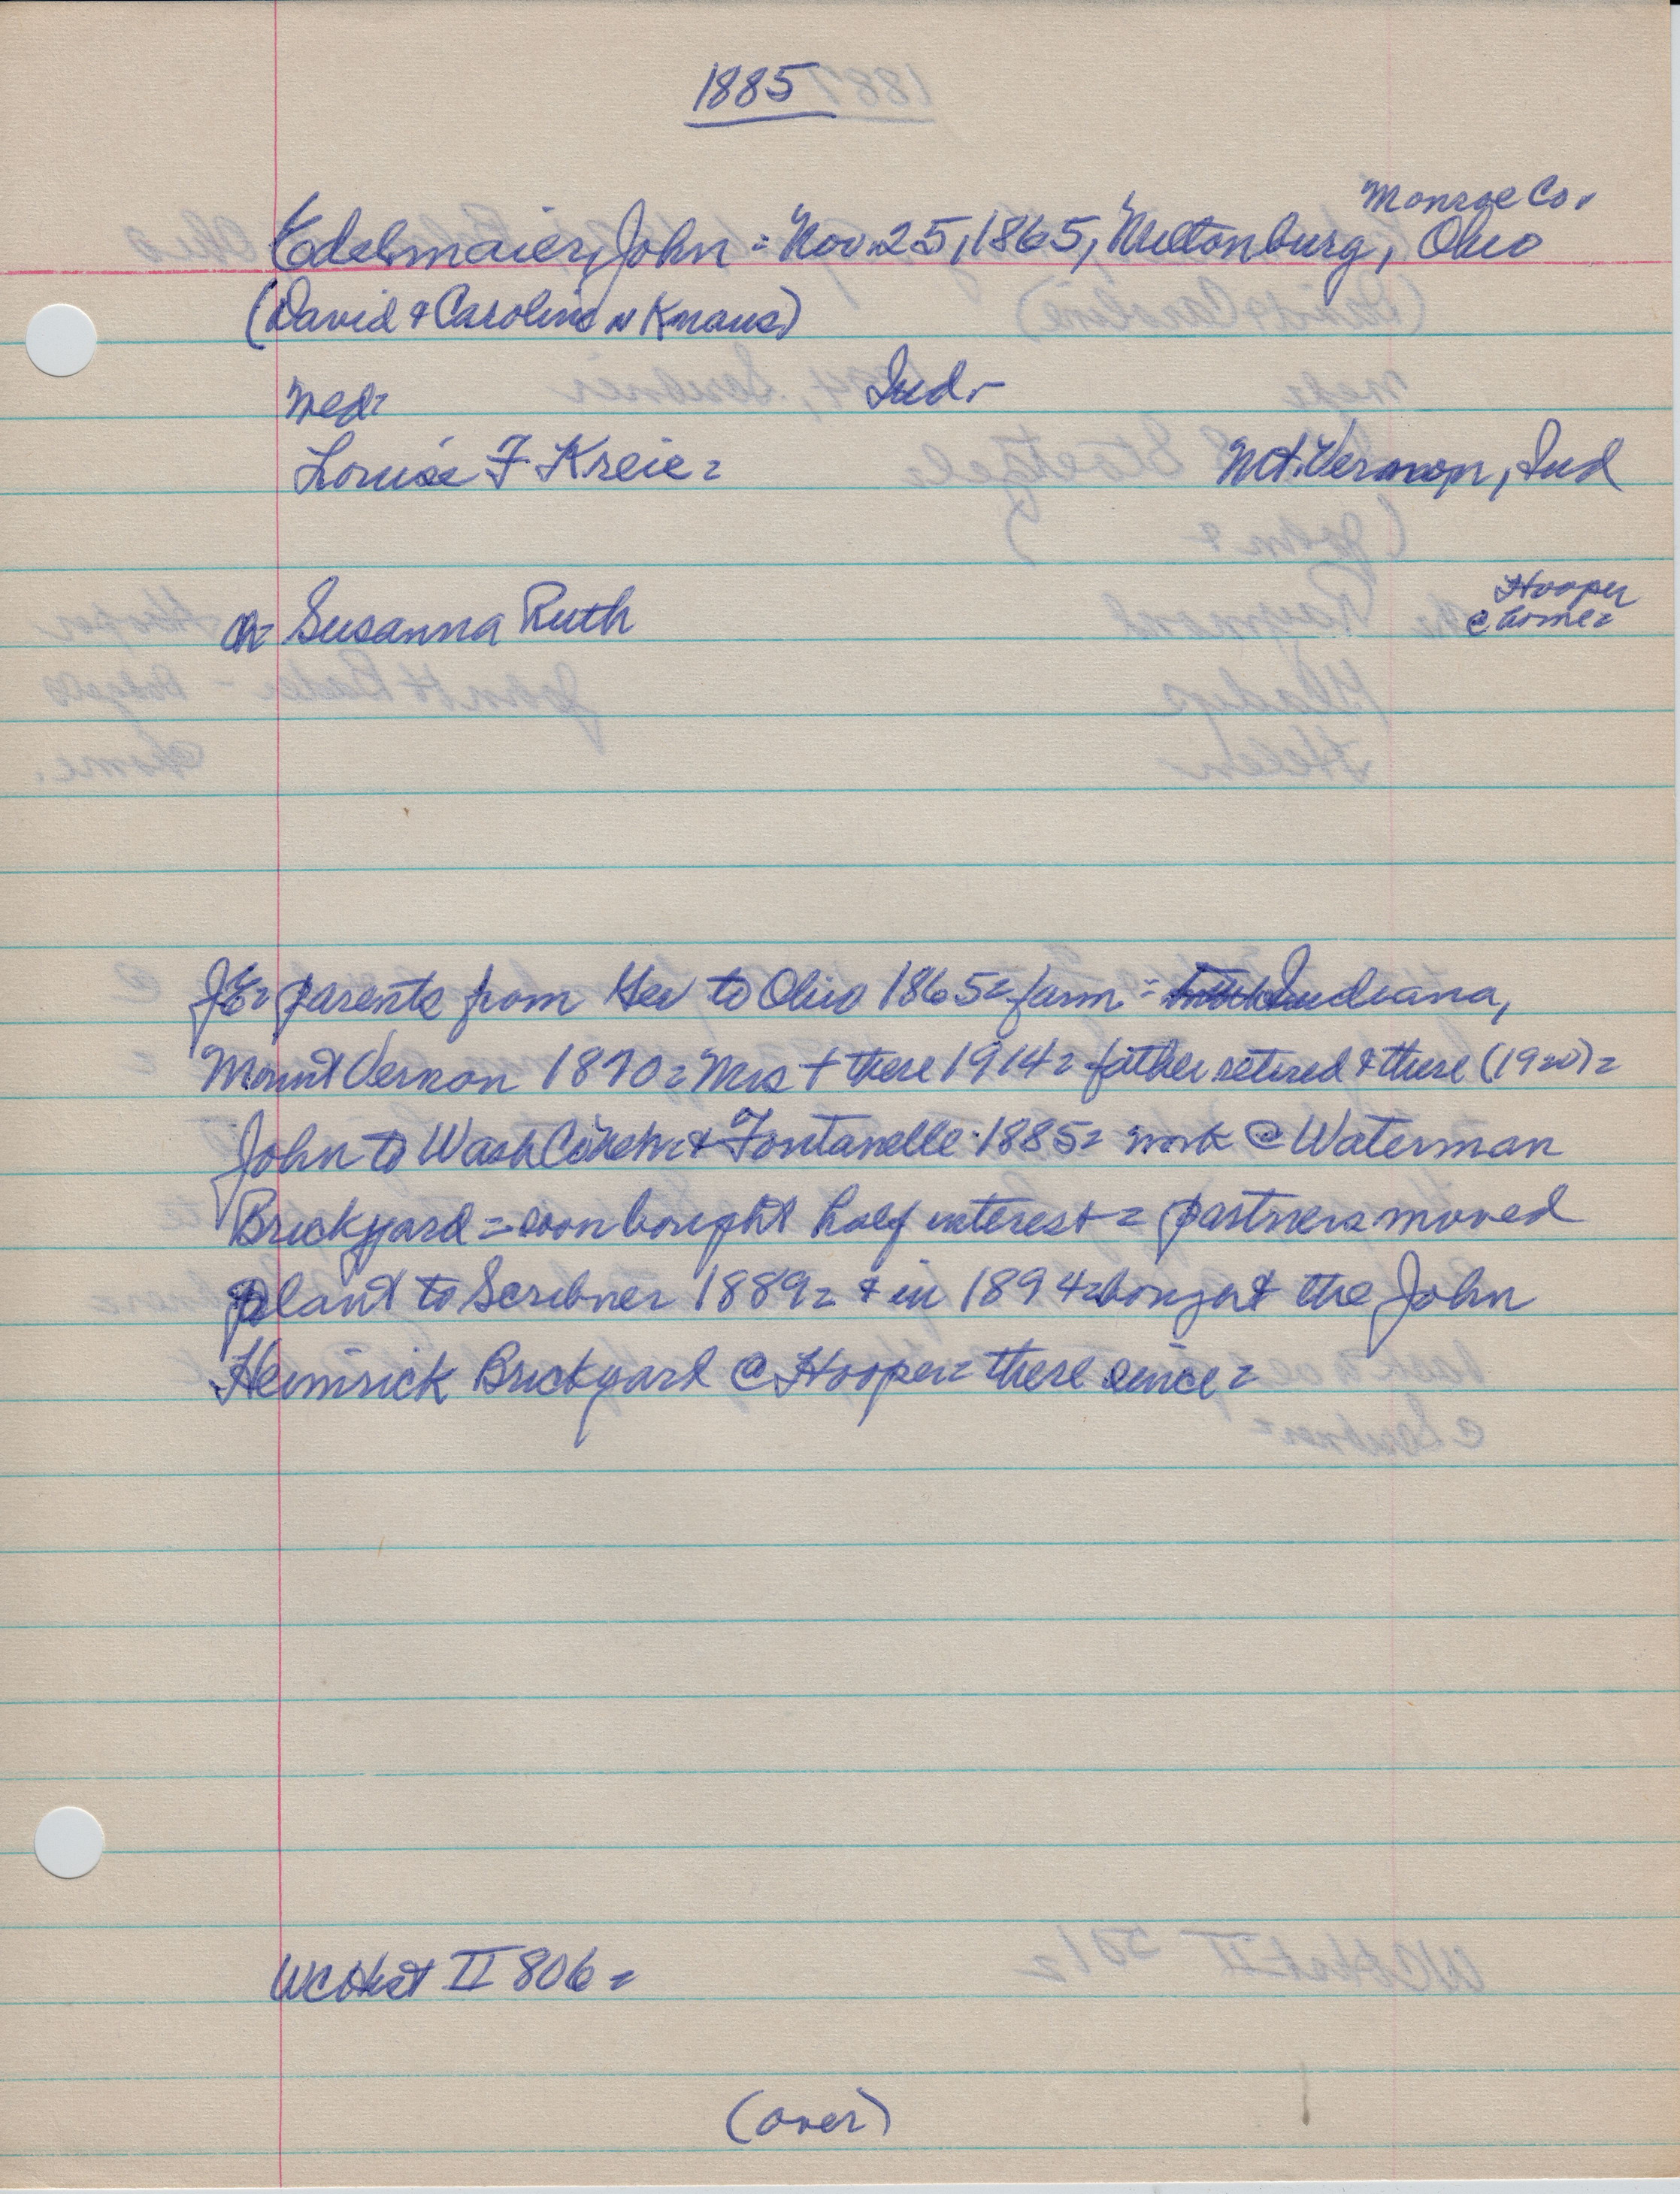 1885
Monroe Co.
Edelmaier, John = Nov. 25, 1865, Miltonburg, Ohio
(David & Caroline N Knaus)
Med= Ind-
Louise F. Kreie = Mt. Vernon, Ind
Hooper
Ch= Susanna Ruth @ home=
JE= parents from Ger to Ohio 1865= farm = Indiana,
Mount Vernon 1870= Mrs + there 1914= father retired & there (1920)=
John to Wash Co & Fontanelle · 1885= work @ Waterman
Brickyard = soon bought half interest = partners moved
plant to Scribner 1889= & in 1894= bought the John
Heimrick Brickyard @ Hooper= there since=
WCHist II 806=
(over)